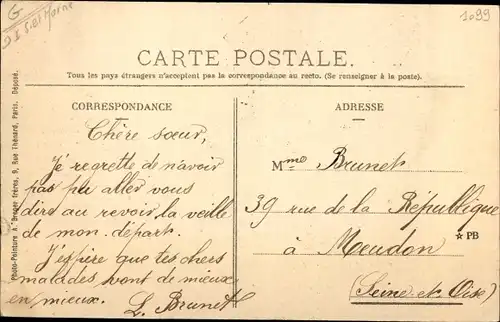 G
S. et Marne
1099
CARTE POSTALE.
Tous les pays étrangers n'acceptent pas la correspondance au recto. (Se renseigner à la poste).
CORRESPONDANCE
Chère sœur,
Je regrette de n'avoir
pas pu aller vous
dire au revoir la veille
de mon départ.
J'espère que tes chers
malades vont de mieux
en mieux.
L. Brunet
ADRESSE
Mme Brunet
39 rue de la République
à Meudon
☆ PB
(Seine et Oise)
Photo-Peinture A. Breger frères, 9, Rue Thénard, Paris. Déposé.